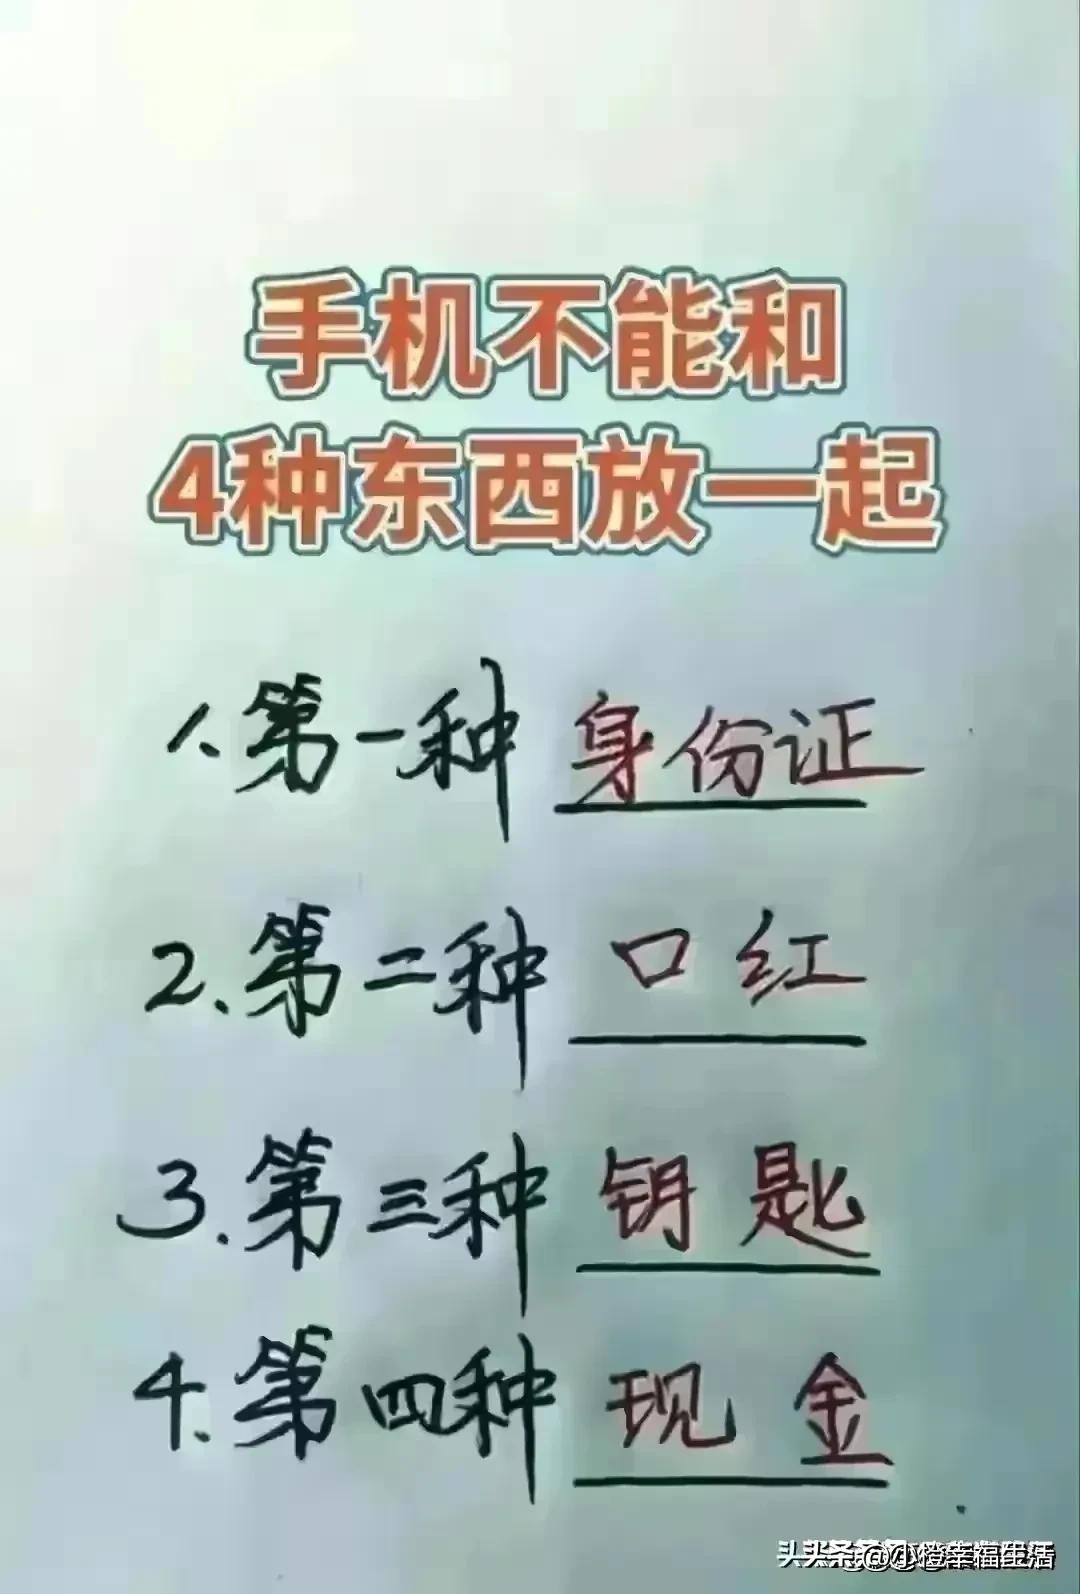 手机不能和
4种东西放一起
1.第一种 身份证
2.第二种 口红
3.第三种 钥匙
4.第四种 现金